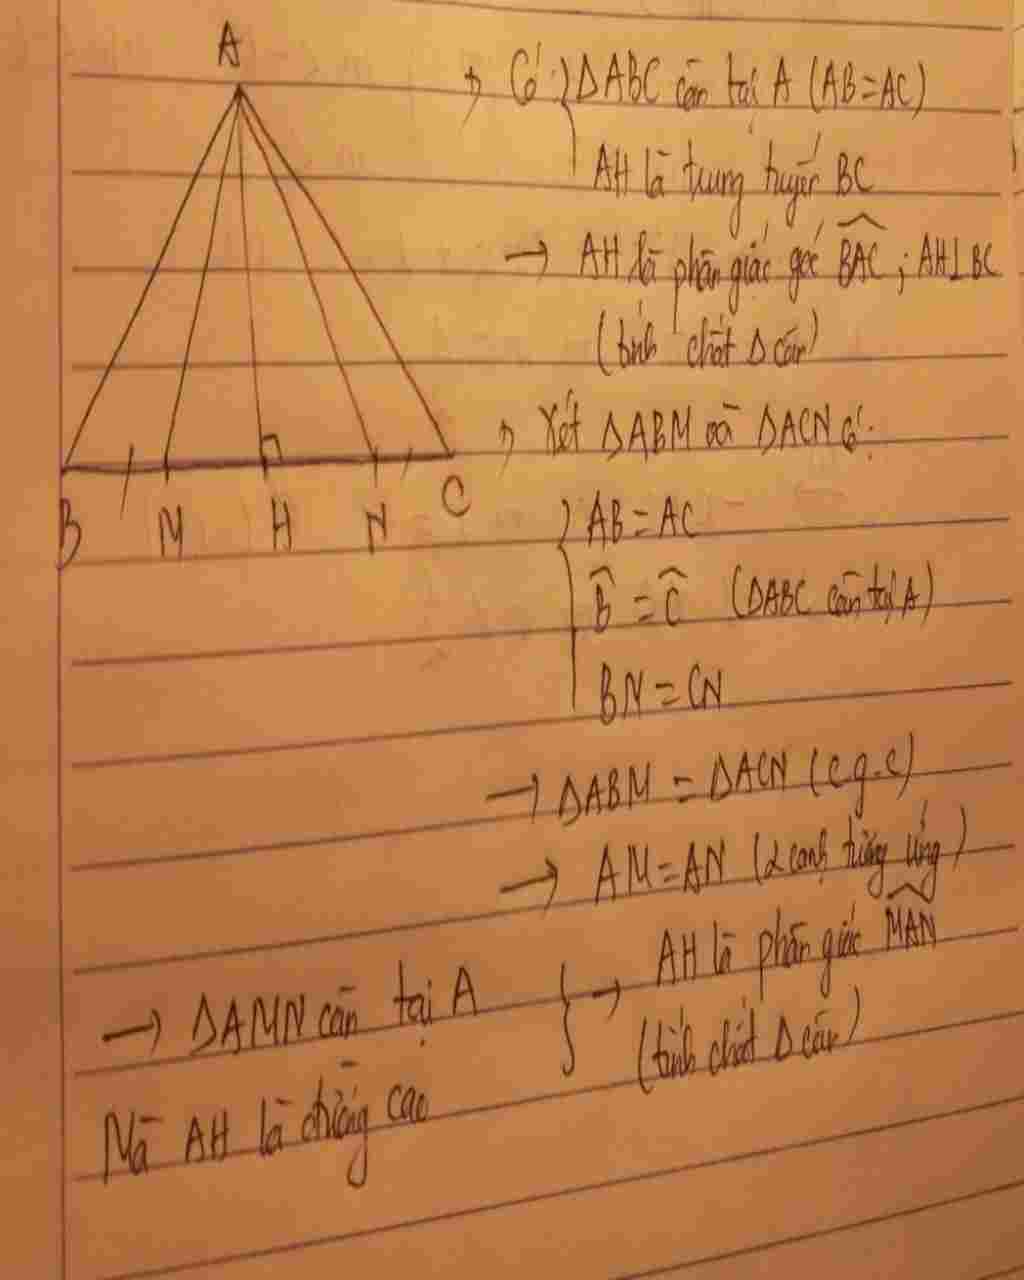 A
B M H N C
→ Có: { ΔABC cân tại A (AB=AC)
AH là trung tuyến BC
→ AH là phân giác góc BAC ; AH⊥BC
(tính chất Δ cân)
→ Xét ΔABM và ΔACN có:
{ AB = AC
B = C (ΔABC cân tại A)
BN = CN
→ ΔABM = ΔACN (c.g.c)
→ AM = AN (2 cạnh tương ứng)
→ ΔAMN cân tại A
Mà AH là đường cao
} → AH là phân giác MAN
(tính chất Δ cân)